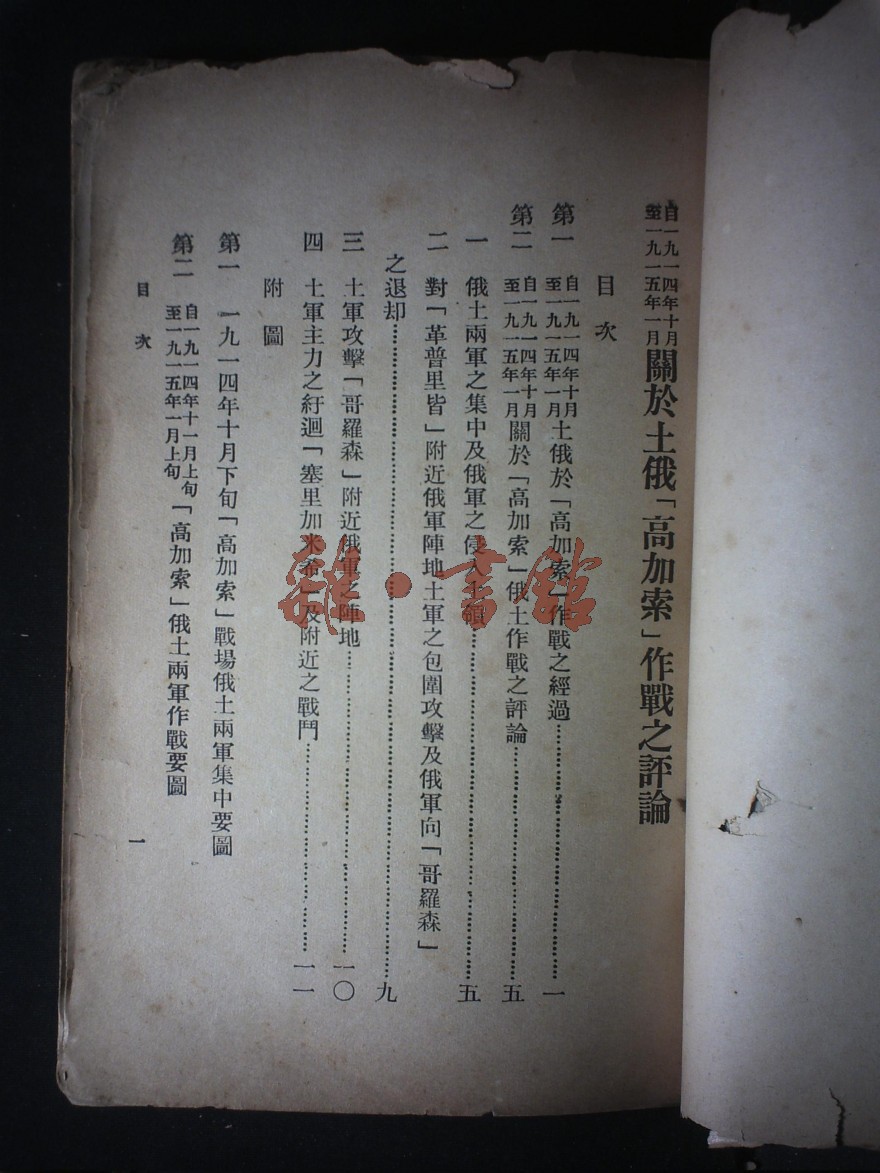 自一九一四年十月
至一九一五年一月
關於土俄「高加索」作戰之評論
目次
第一 自一九一四年十月至一九一五年一月土俄於「高加索」作戰之經過……一
第二 自一九一四年十月至一九一五年一月關於「高加索」俄土作戰之評論……五
一 俄土兩軍之集中及俄軍之侵入土領……五
二 對「革普里皆」附近俄軍陣地土軍之包圍攻擊及俄軍向「哥羅森」
之退却……九
三 土軍攻擊「哥羅森」附近俄軍之陣地……一〇
四 土軍主力之紆迴「塞里加米希」及附近之戰鬥……一一
附圖
第一 一九一四年十月下旬「高加索」戰場俄土兩軍集中要圖
第二 自一九一四年十一月上旬至一九一五年一月上旬「高加索」俄土兩軍作戰要圖
目次
一
雜·書館